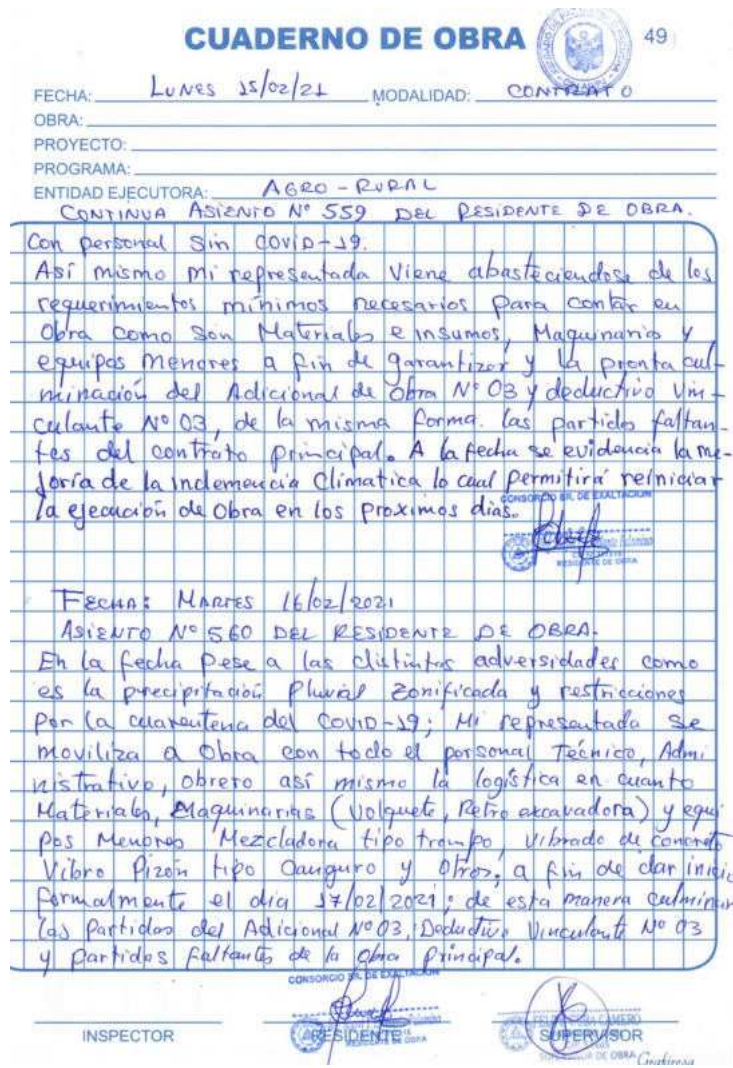 CUADERNO DE OBRA
49
FECHA: LUNES 15/02/21 MODALIDAD: CONTRATO
OBRA:
PROYECTO:
PROGRAMA:
ENTIDAD EJECUTORA: AGRO-RURAL
CONTINUA ASIENTO N° 559 DEL RESIDENTE DE OBRA.
Con personal sin COVID-19.
Así mismo mi representada viene abasteciendose de los
requerimientos mínimos necesarios para contar en
Obra como son Materiales e insumos, Maquinarias y
equipos menores a fin de garantizar y la pronta cul-
minación del Adicional de Obra N° 03 y deductivo vin-
culante N° 03, de la misma forma. las partidas faltan-
tes del contrato principal. A la fecha se evidencia la me-
joría de la inclemencia climatica lo cual permitirá reiniciar
la ejecución de Obra en los proximos dias.
CONSORCIO SR. DE EXALTACION
RESIDENTE DE OBRA
FECHA: MARTES 16/02/2021
ASIENTO N° 560 DEL RESIDENTE DE OBRA.
En la fecha Pese a las distintas adversidades como
es la precipitación Pluvial zonificada y restricciones
por la cuarentena del COVID-19; Mi representada se
moviliza a Obra con todo el personal Técnico, Admi
nistrativo, obrero así mismo la logística en cuanto
Materiales, Maquinarias (Volquete, Retro excavadora) y equi
pos Menores Mezcladora tipo trompo, vibrado de concreto
Vibro Pizón tipo Canguro y Otros, a fin de dar inicio
formalmente el dia 17/02/2021; de esta manera culminar
las Partidas del Adicional N° 03, Deductivo Vinculante N° 03
y Partidas faltantes de la obra Principal.
CONSORCIO SR. DE EXALTACION
INSPECTOR
RESIDENTE
SUPERVISOR
RESIDENTE DE OBRA
Grafiresa